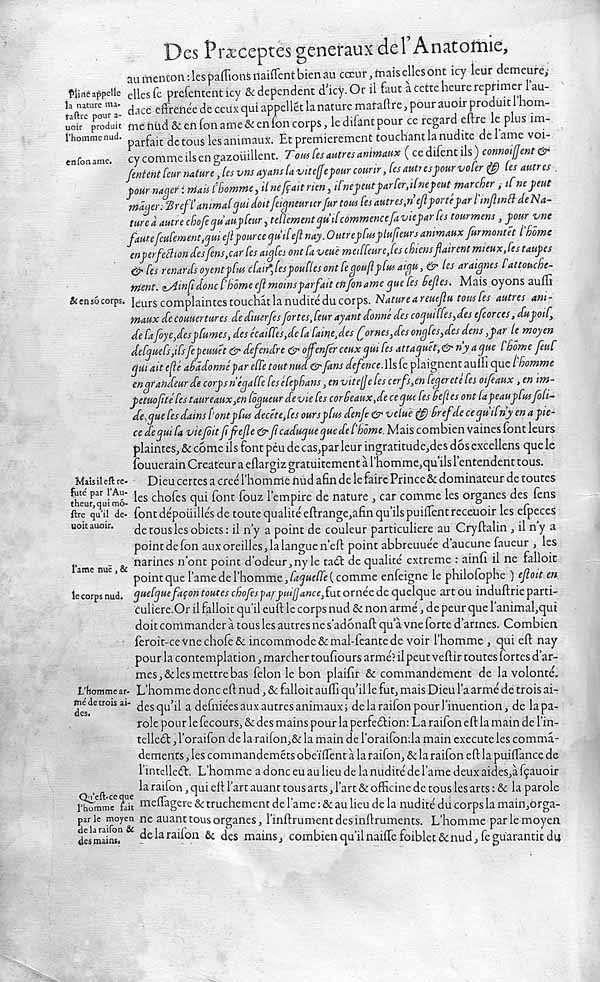 Des Præceptes generaux de l'Anatomie,
au menton: les paſſions naiſſent bien au cœur, mais elles ont icy leur demeure,
elles ſe preſentent icy & dependent d'icy. Or il faut à cette heure reprimer l'au-
dace effrenée de ceux qui appellẽt la nature maraſtre, pour auoir produit l'hom-
me nud & en ſon ame & en ſon corps, le diſant pour ce regard eſtre le plus im-
parfait de tous les animaux. Et premierement touchant la nudite de l'ame voi-
cy comme ils en gazoüillent. Tous les autres animaux (ce diſent ils) connoiſſent &
ſentent leur nature, les vns ayans la viteſſe pour courir, les autres pour voler & les autres
pour nager: mais l'homme, il ne ſçait rien, il ne peut parler, il ne peut marcher, il ne peut
mãger. Bref l'animal qui doit ſeigneurier ſur tous les autres, n'eſt porté par l'inſtinct de Na-
ture à autre choſe qu'au pleur, tellement qu'il commence ſa vie par les tourmens, pour vne
faute ſeulement, qui eſt pource qu'il eſt nay. Outre plus pluſieurs animaux ſurmontẽt l'hõme
en perfection des ſens, car les aigles ont la veuë meilleure, les chiens flairent mieux, les taupes
& les renards oyent plus clair, les poulles ont le gouſt plus aigu, & les araignes l'attouche-
ment. Ainſi donc l'hõme eſt moins parfait en ſon ame que les beſtes. Mais oyons auſſi
leurs complaintes touchãt la nudité du corps. Nature a reueſtu tous les autres ani-
maux de couuertures de diuerſes ſortes, leur ayant donné des coquilles, des eſcorces, du poil,
de la ſoye, des plumes, des écailles, de la laine, des Cornes, des ongles, des dens, par le moyen
deſquels, ils ſe peuuẽt & defendre & offenſer ceux qui les attaquẽt, & n'y a que l'hõme ſeul
qui ait eſté abãdonné par elle tout nud & ſans defence. Ils ſe plaignent auſſi que l'homme
en grandeur de corps n'égalle les élephans, en viteſſe les cerfs, en legereté les oiſeaux, en im-
petuoſité les taureaux, en lõgueur de vie les corbeaux, de ce que les beſtes ont la peau plus ſoli-
de, que les dains l'ont plus decẽte, les ours plus denſe & veluë & bref de ce qu'il n'y en a pie-
ce de qui la vie ſoit ſi freſle & ſi caduque que de l'hõme. Mais combien vaines ſont leurs
plaintes, & cõme ils font peu de cas, par leur ingratitude, des dõs excellens que le
ſouuerain Createur a eſlargiz gratuitement à l'homme, qu'ils l'entendent tous.
Dieu certes a creé l'homme nud afin de le faire Prince & dominateur de toutes
les choſes qui ſont ſouz l'empire de nature, car comme les organes des ſens
ſont dépoüillés de toute qualité eſtrange, afin qu'ils puiſſent receuoir les eſpeces
de tous les obiets: il n'y a point de couleur particuliere au Cryſtalin, il n'y a
point de ſon aux oreilles, la langue n'eſt point abbreuuée d'aucune ſaueur, les
narines n'ont point d'odeur, ny le tact de qualité extreme: ainſi il ne falloit
point que l'ame de l'homme, laquelle (comme enſeigne le philoſophe) eſtoit en
quelque façon toutes choſes par puiſſance, fut ornée de quelque art ou induſtrie parti-
culiere. Or il falloit qu'il euſt le corps nud & non armé, de peur que l'animal, qui
doit commander à tous les autres ne s'adõnaſt qu'à vne ſorte d'armes. Combien
ſeroit-ce vne choſe & incommode & mal-ſeante de voir l'homme, qui eſt nay
pour la contemplation, marcher touſiours armé? il peut veſtir toutes ſortes d'ar-
mes, & les mettre bas ſelon le bon plaiſir & commandement de la volonté.
L'homme donc eſt nud, & falloit auſſi qu'il le fut, mais Dieu l'a armé de trois ai-
des qu'il a deſniées aux autres animaux; de la raiſon pour l'inuention, de la pa-
role pour le ſecours, & des mains pour la perfection: La raiſon eſt la main de l'in-
tellect, l'oraiſon de la raiſon, & la main de l'oraiſon: la main execute les commã-
demens, les commandemẽts obeïſſent à la raiſon, & la raiſon eſt la puiſſance de
l'intellect. L'homme a donc eu au lieu de la nudité de l'ame deux aides, à ſçauoir
la raiſon, qui eſt l'art auant tous arts, l'art & officine de tous les arts: & la parole
meſſagere & truchement de l'ame: & au lieu de la nudité du corps la main, orga-
ne auant tous organes, l'inſtrument des inſtruments. L'homme par le moyen
de la raiſon & des mains, combien qu'il naiſſe foiblet & nud, ſe guarantit du
Pline appelle
la nature ma-
raſtre pour a-
uoir produit
l'homme nud.
en ſon ame.
& en sõ corps.
Mais il eſt re-
futé par l'Au-
theur, qui mõ-
ſtre qu'il de-
uoit auoir.
l'ame nuë, &
le corps nud.
L'homme ar-
mé de trois ai-
des.
Qu'eſt-ce que
l'homme fait
par le moyen
de la raiſon &
des mains.